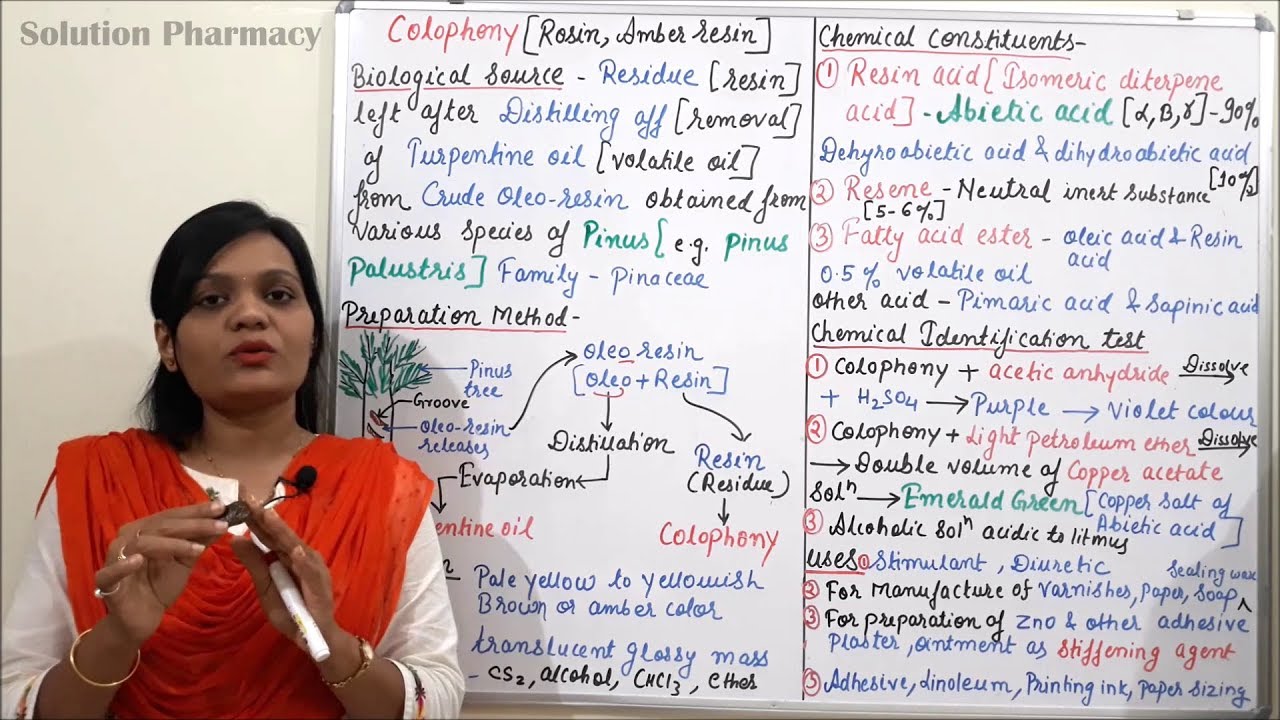 Solution Pharmacy
Colophony [Rosin, Amber resin]
Biological Source - Residue [resin]
left after Distilling off [removal]
of Turpentine oil [volatile oil]
from Crude Oleo-resin obtained from
various species of Pinus [e.g. pinus
Palustris] Family - Pinaceae
Preparation Method -
Pinus
tree
Groove
Oleo-resin
releases
Oleo resin
[Oleo + Resin]
Distillation
Evaporation
entine oil
Resin
(Residue)
Colophony
Pale yellow to yellowish
Brown or amber color
translucent glossy mass
- CS2, alcohol, CHCl3, ether
Chemical Constituents-
① Resin acid [Isomeric diterpene
acid] - Abietic acid [α, B, γ] - 90%
Dehyroabietic acid & dihydroabietic acid
[10%]
② Resene - Neutral inert substance
[5-6%]
③ Fatty acid ester - oleic acid & Resin
acid
0.5% volatile oil
other acid - Pimaric acid & Sapinic acid
Chemical Identification test
① Colophony + acetic anhydride Dissolve →
+ H2SO4 → Purple → Violet colour
② Colophony + Light petroleum ether Dissolve →
→ Double volume of Copper acetate
Solⁿ → Emerald Green [Copper salt of
Abietic acid]
③ Alcoholic Solⁿ acidic to litmus
Uses ① Stimulant, Diuretic
② For Manufacture of varnishes, paper, soap ^ Sealing wax
③ For preparation of ZnO & other adhesive
plaster, ointment as Stiffening agent
③ Adhesive, Linoleum, Printing ink, paper sizing